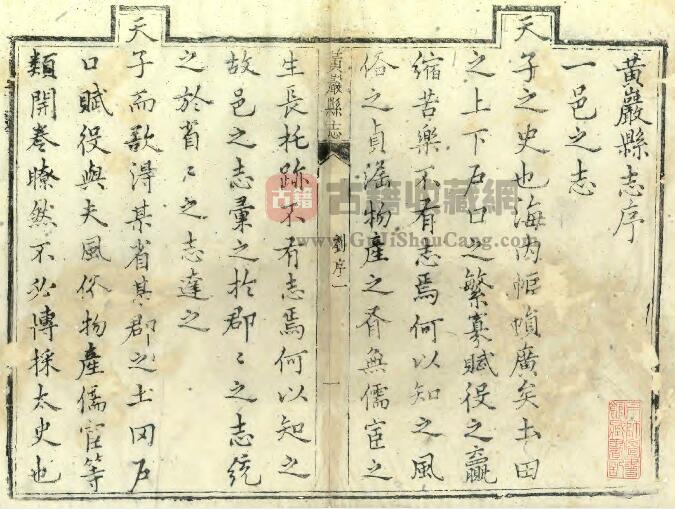 黄巖縣志序
一邑之志
天
子之史也海內幅幀廣矣土田
之上下戶口之繁寡賦役之贏
縮苦樂不有志焉何以知之風
俗之貞淫物產之有無儒宦之
黃巖縣志
劉序一
一
生長托跡不有志焉何以知之
故邑之志彙之於郡〻之志統
之於省〻之志達之
天
子而欲淂某省某郡之土田戶
口賦役與夫風俗物產儒宦等
類開卷瞭然不必傅採太史也
古籍
古籍收藏網
www.GuJiShouCang.com